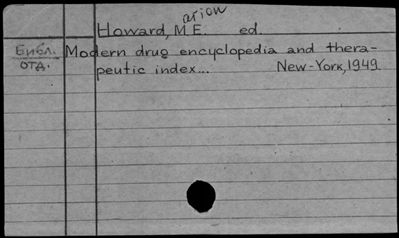 arion
Howard, M.E. ed.
Библ. Modern drug encyclopedia and thera-
отд. peutic index... New-York, 1949